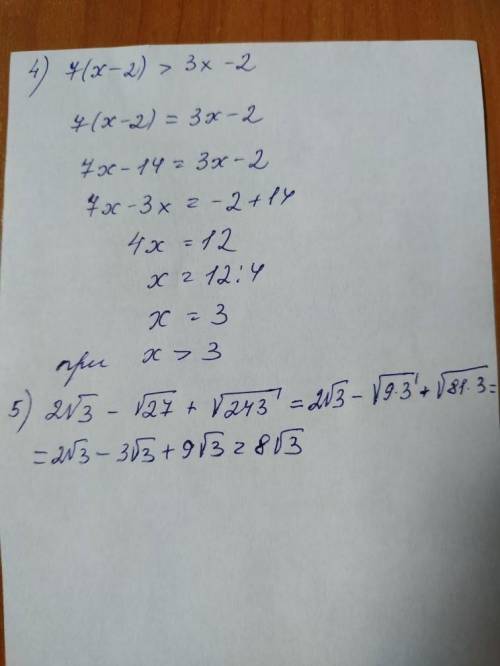 4) 7(x-2) > 3x -2
7(x-2) = 3x-2
7x-14 = 3x-2
7x-3x = -2+14
4x = 12
x = 12:4
x = 3
при x > 3
5) 2√3 - √27 + √243 = 2√3 - √9·3 + √81·3 =
= 2√3 - 3√3 + 9√3 = 8√3